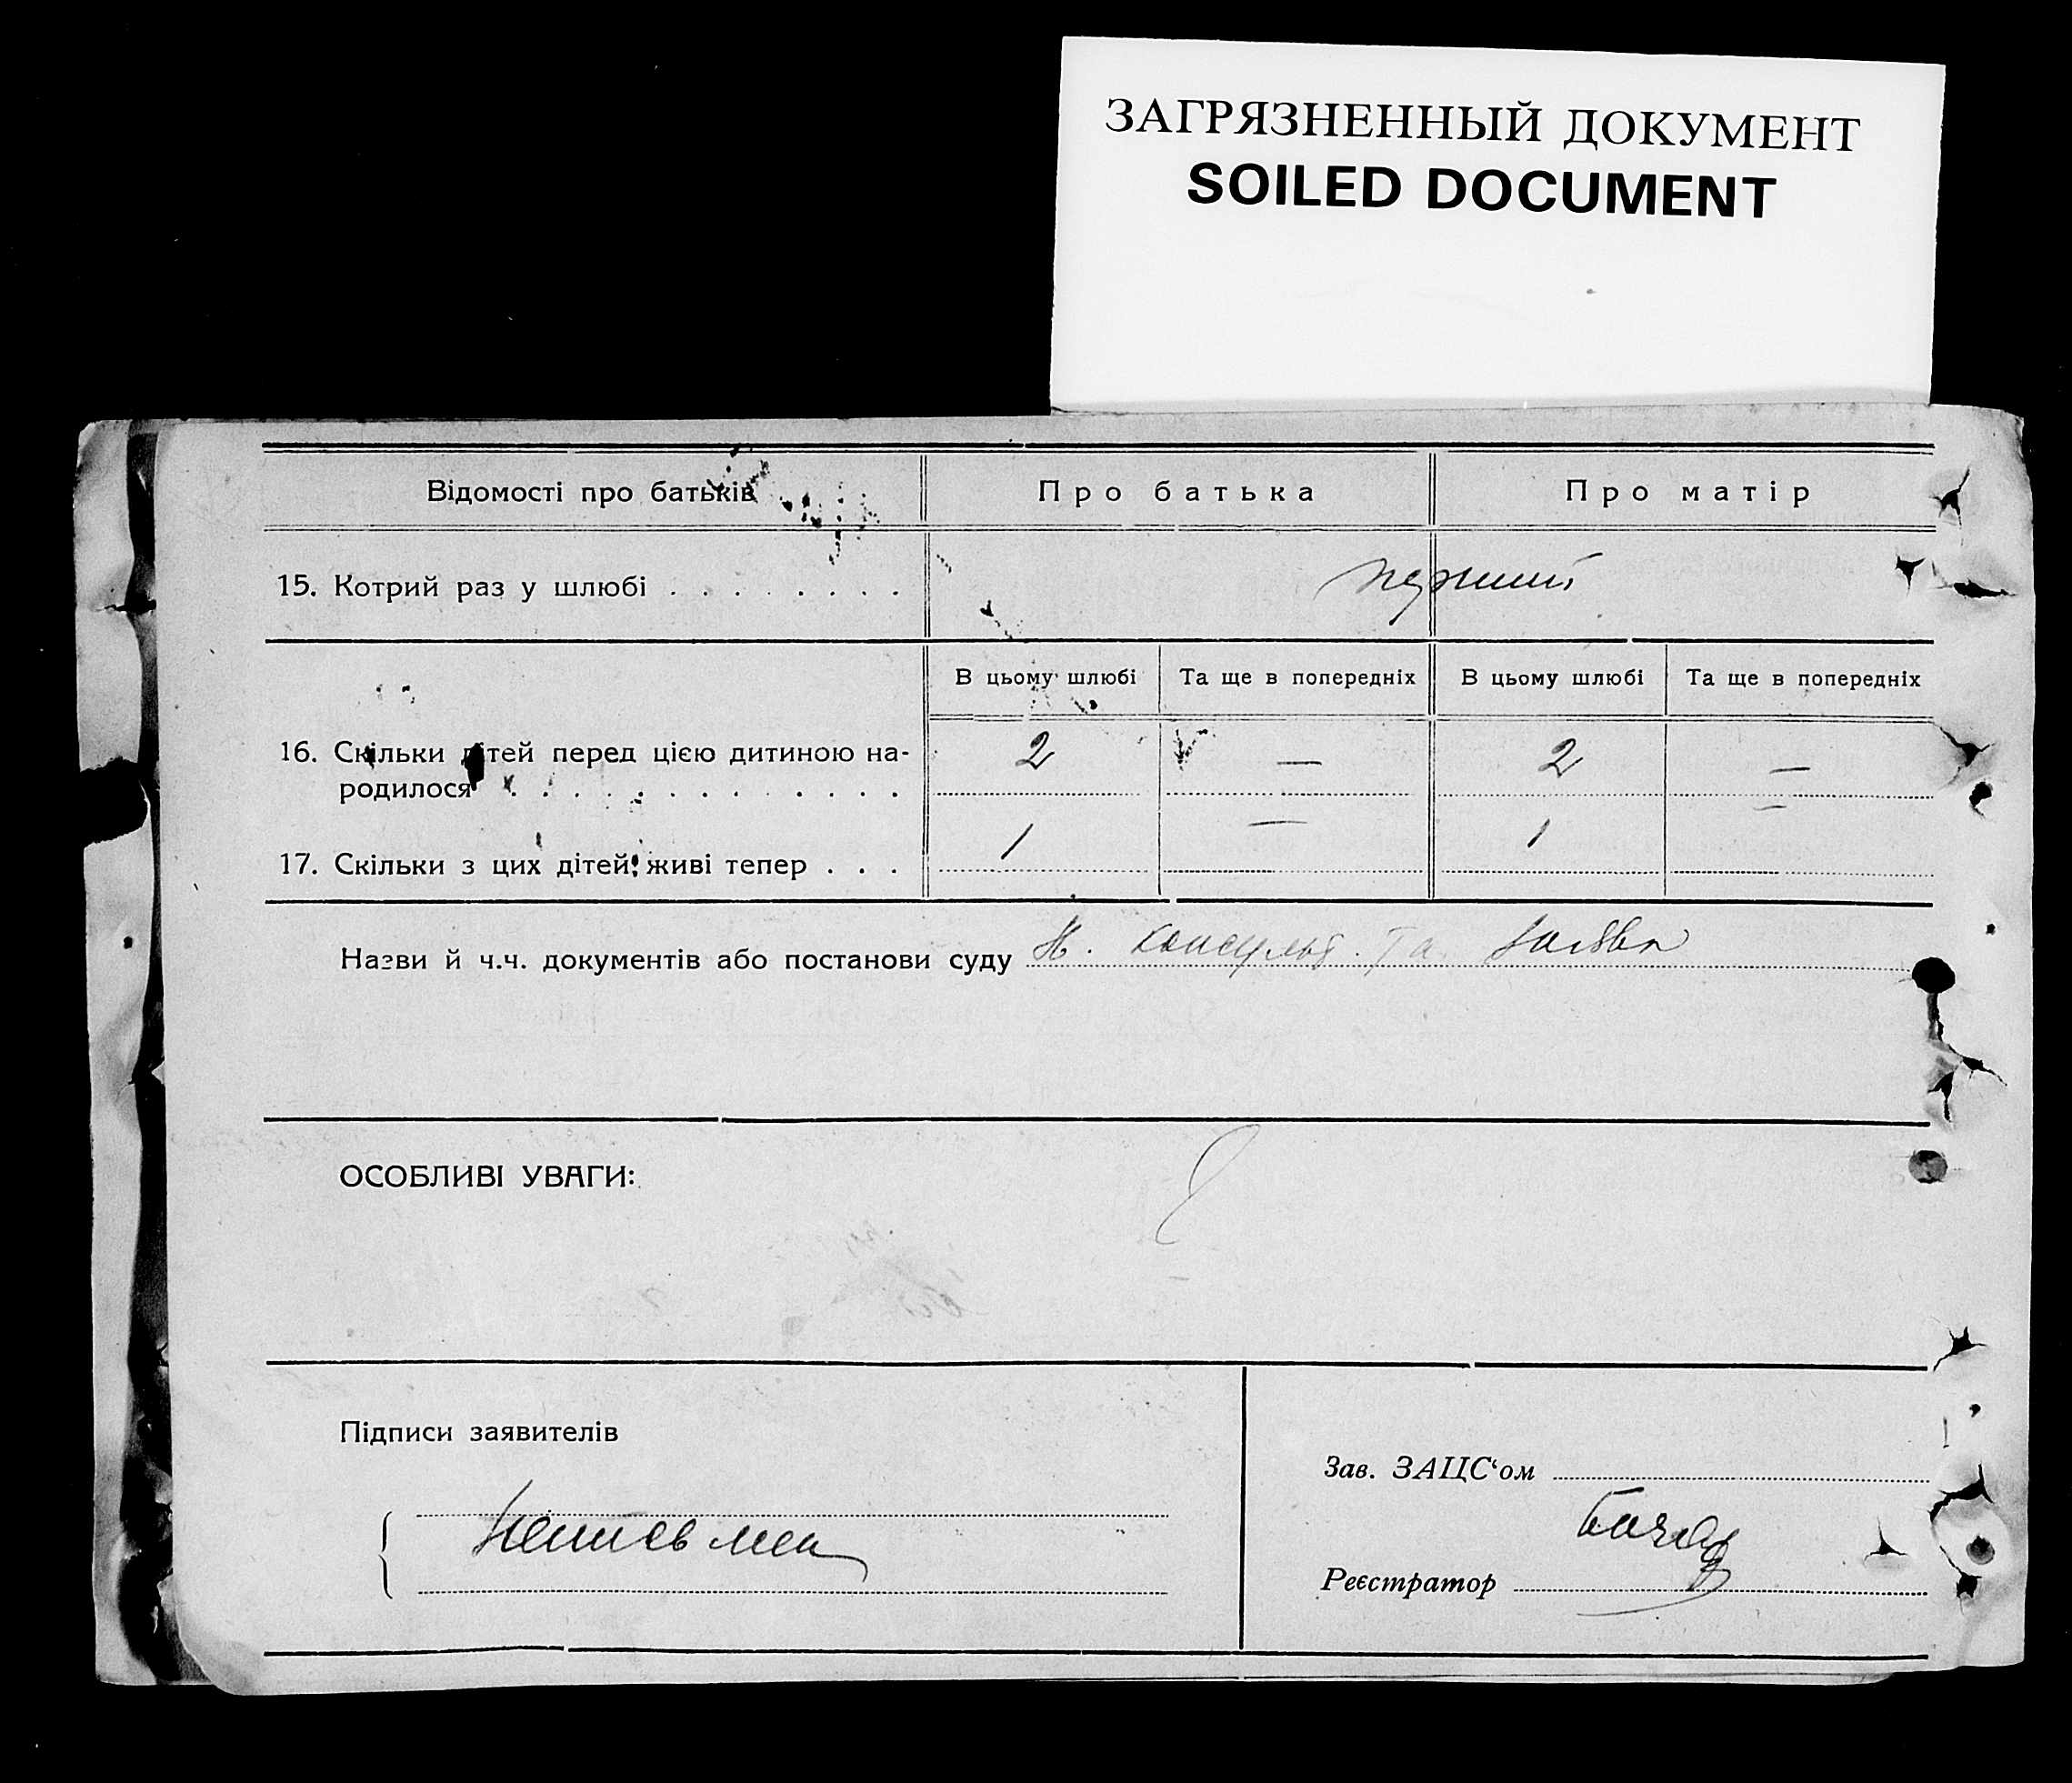 ЗАГРЯЗНЕННЫЙ ДОКУМЕНТ
SOILED DOCUMENT
Відомості про батьків Про батька Про матір
15. Котрий раз у шлюбі . . . . . . . . перший
В цьому шлюбі Та ще в попередніх В цьому шлюбі Та ще в попередніх
16. Скільки дітей перед цією дитиною на-
родилося . . . . . . . . . . . . . 2 — 2 —
17. Скільки з цих дітей живі тепер . . . 1 — 1 —
Назви й ч.ч. документів або постанови суду Ж. консульт. та заява
ОСОБЛИВІ УВАГИ:
Підписи заявителів
Зав. ЗАЦС‘ом
Реєстратор